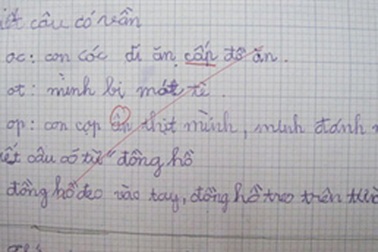 iết câu có vần
oc: con cóc đi ăn cắp đồ ăn.
ot: mình bị mót tè.
op: con cọp ăn thịt mình, mình đánh
iết câu có từ "đồng hồ
đồng hồ đeo vào tay, đồng hồ treo trên tườ